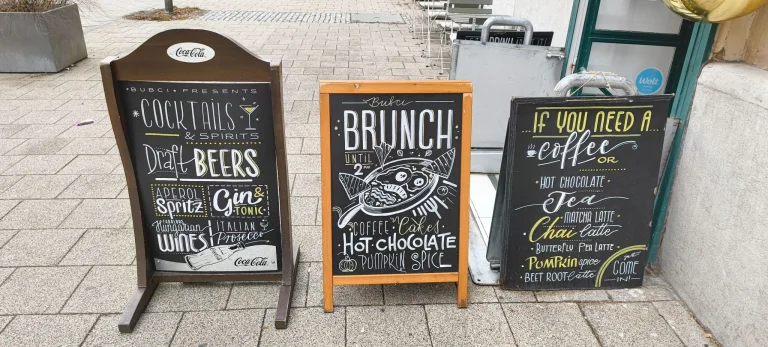 Coca-Cola
BUBCI PRESENTS
COCKTAILS
& SPIRITS
Draft BEERS
APEROL
Spritz
Gin &
TONIC
Hungarian
WINES
ITALIAN
Prosecco
Coca-Cola
Bubci
BRUNCH
UNTIL
2 PM
COFFEE n' Cakes
HOT CHOCOLATE
PUMPKIN SPICE
IF YOU NEED A
Coffee OR
HOT CHOCOLATE
Tea
MATCHA LATTE
Chai latte
BUTTERFLY PEA LATTE
PUMPKIN spice
BEET ROOT latte
COME
IN!
Wolt